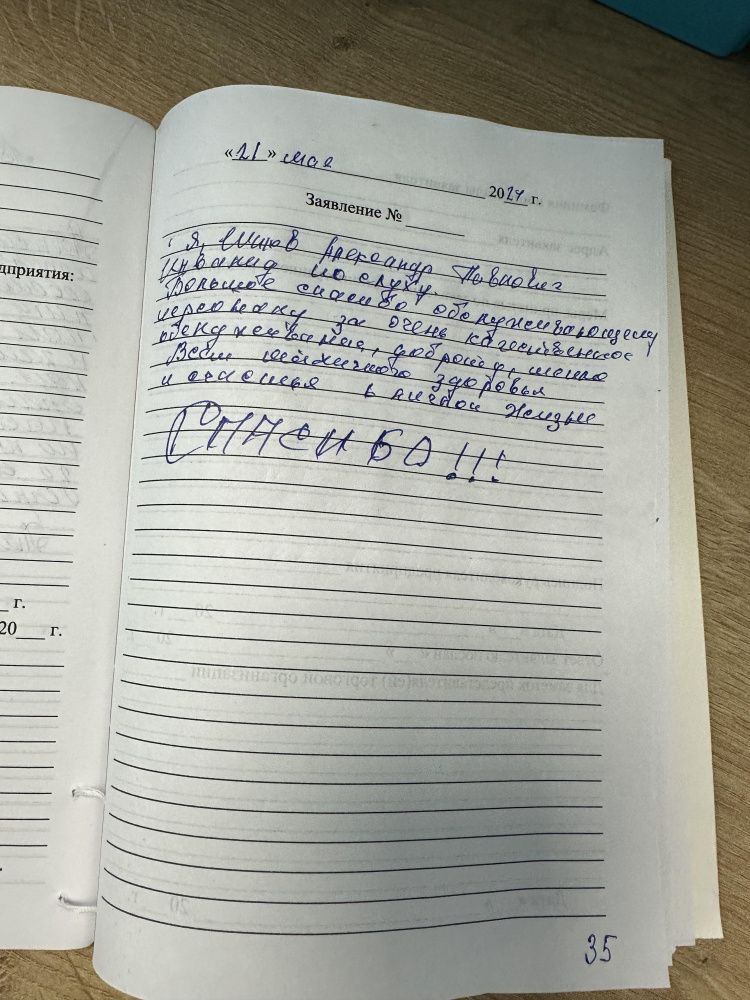 « 21 » мая 2024 г.
Заявление №
Я, Александр Павлович
Инвалид по слуху.
Большое спасибо обслуживающему
персоналу за очень качественное
обслуживание, доброту,
Всем здоровья
и счастья в личной жизни
СПАСИБО!!!
35
дприятия:
г.
20 г.